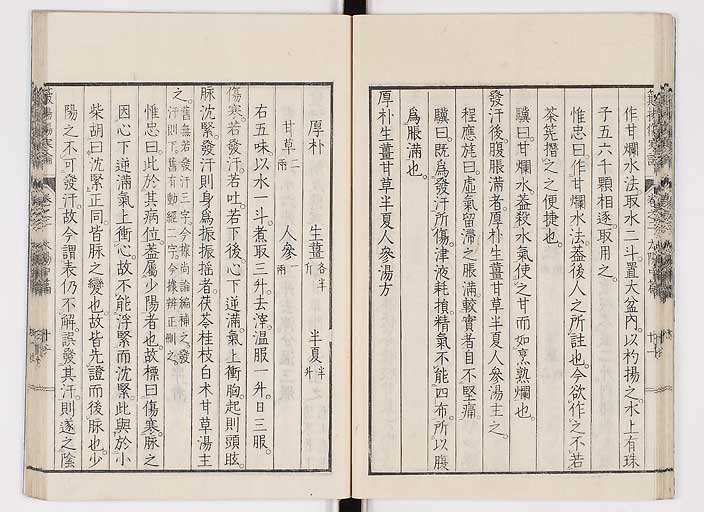 作甘爛水法取水二斗。置大盆內。以杓揚之。水上有珠
子五六千顆相逐取用之。
惟忠曰作甘爛水法。蓋後人之所註也。今欲作之。不若
茶筅撍之之便捷也。
驥曰甘爛水。蓋殺水氣。使之甘而如烹熟爛也。
發汗後。腹脹滿者。厚朴生薑甘草半夏人參湯主之。
程應旄曰。虛氣留滯之脹滿。較實者自不堅痛。
驥曰。既爲發汗所傷。津液耗損。精氣不能四布。所以腹
爲脹滿也。
厚朴生薑甘草半夏人參湯方
厚朴 生薑各半斤 半夏半升
甘草二兩 人參一兩
右五味以水一斗。煮取三升。去滓。溫服一升。日三服。
傷寒。若發汗。若吐。若下後。心下逆滿。氣上衝胸。起則頭眩。
脉沈緊。發汗則身爲振振搖者。茯苓桂枝白朮甘草湯主
之。舊無若發汗三字。今據尚論編補之。發汗則下。舊有動經二字。今據辨正刪之。
惟忠曰。此於其病位。蓋屬少陽者也。故標曰傷寒。脉之
因心下逆滿。氣上衝心。故不能浮緊而沈緊。此與於小
柴胡曰沈緊正同。皆脉之變也。故皆先證而後脉也。少
陽之不可發汗。故今謂表仍不解。誤發其汗。則遂之陰